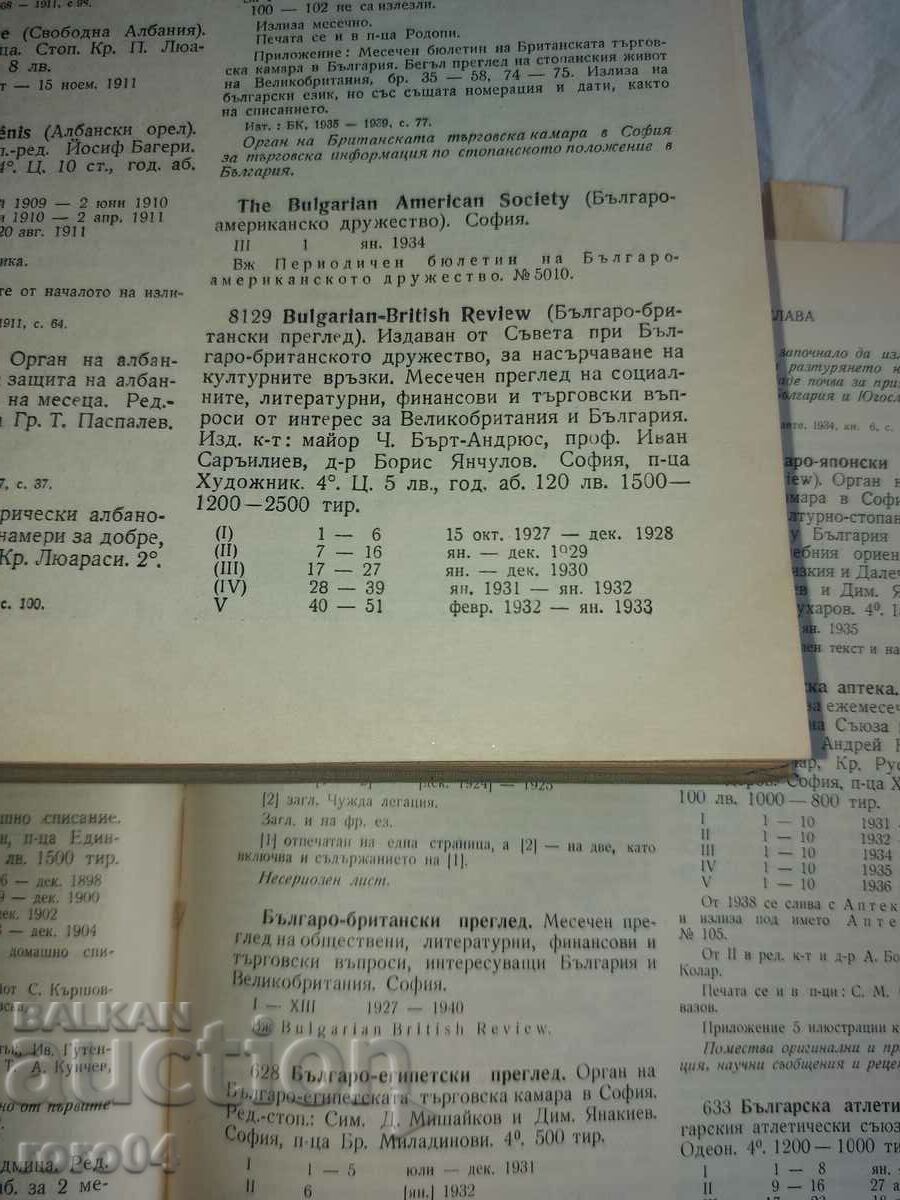 68 – 1911, с 98.
е (Свободна Албания).
ца. Стоп. Кр. П. Люа-
8 лв.
т — 15 ноем. 1911
énis (Албански орел).
л.-ред. Йосиф Багери.
4°. Ц. 10 ст., год. аб.
1909 — 2 юни 1910
1910 — 2 апр. 1911
20 авг. 1911
ика.
те от началото на изли-
1911, с. 64.
Орган на албан-
защита на албан-
на месеца. Ред.-
Гр. Т. Паспалев.
7, с. 37.
рически албано-
намери за добре,
Кр. Люараси. 2°.
с. 100.
100 — 102 не са излезли.
Излиза месечно.
Печата се и в п-ца Родопи.
Приложение: Месечен бюлетин на Британската търгов-
ска камара в България. Бегъл преглед на стопанския живот
на Великобритания, бр. 35 — 58, 74 — 75. Излиза на
български език, но със същата номерация и дати, както
на списанието.
Изт.: БК, 1935 — 1939, с. 77.
Орган на Британската търговска камара в София
за търговска информация по стопанското положение в
България.
The Bulgarian American Society (Българо-
американско дружество). София.
III 1 ян. 1934
Вж Периодичен бюлетин на Българо-
американското дружество. № 5010.
8129 Bulgarian-British Review (Българо-бри-
тански преглед). Издаван от Съвета при Бъл-
гаро-британското дружество, за насърчаване на
културните връзки. Месечен преглед на социал-
ните, литературни, финансови и търговски въп-
роси от интерес за Великобритания и България.
Изд. к-т: майор Ч. Бърт-Андрюс, проф. Иван
Саръилиев, д-р Борис Янчулов. София, п-ца
Художник. 4°. Ц. 5 лв., год. аб. 120 лв. 1500—
1200—2500 тир.
(I) 1 — 6 15 окт. 1927 — дек. 1928
(II) 7 — 16 ян. — дек. 1929
(III) 17 — 27 ян. — дек. 1930
(IV) 28 — 39 ян. 1931 — ян. 1932
V 40 — 51 февр. 1932 — ян. 1933
ЛАВА
започнало да из
разтурянето н
аде почва за при
ългария и Югосл
1934, кн. 6, с.
аро-японски
iew). Орган н
мара в Софи
лтурно-стопан
у България
ебния ориен
изкия и Далеч
в и Дим. Я
ухаров. 4°. 1
ян. 1935
лен текст и на
ска аптека.
ва ежемесеч
на Съюза
Андрей
ар, Кр. Рус
София, п-ца Х
100 лв. 1000 — 800 тир.
I 1 — 10 1931
II 1 — 10 1932
III 1 — 10 1934
IV 1 — 10 1935
V 1 — 10 1936
От 1938 се слива с Аптек
и излиза под името Апте
№ 105.
От II в ред. к-т и д-р А. Бо
Колар.
Печата се и в п-ци: С. М.
вазов.
Приложение 5 илюстрации к
Помества оригинални и пр
ция, научни съобщения и реце
633 Българска атлети
гарския атлетически съюз
Одеон. 4°. 1200 — 1000 ти
I 1 — 8 ян.
II 9 — 16 27 а
[дек. 1924] — 1925
[2] загл. Чужда легация.
Загл. и на фр. ез.
[1] отпечатан на една страница, а [2] — на две, като
включва и съдържанието на [1].
Несериозен лист.
Българо-британски преглед. Месечен пре-
глед на обществени, литературни, финансови и
търговски въпроси, интересуващи България и
Великобритания. София.
I — XIII 1927 — 1940
Вж Bulgarian British Review.
628 Българо-египетски преглед. Орган на
Българо-египетската търговска камара в София.
Ред.-стоп.: Сим. Д. Мишайков и Дим. Янакиев.
София, п-ца Бр. Миладинови. 4°, 500 тир.
I 1 — 5 юли — дек. 1931
II 6 [ян.] 1932
ашно списание.
н, п-ца Един-
лв. 1500 тир.
6 — дек. 1898
9 — дек. 1900
дек. 1902
— дек. 1904
домашно спи-
от С. Кършов-
Ив. Гутен-
Т. А. Кунчев,
но от първите
дмица. Ред.
аб. за 2 ме-
BALKAN
auction
roro04